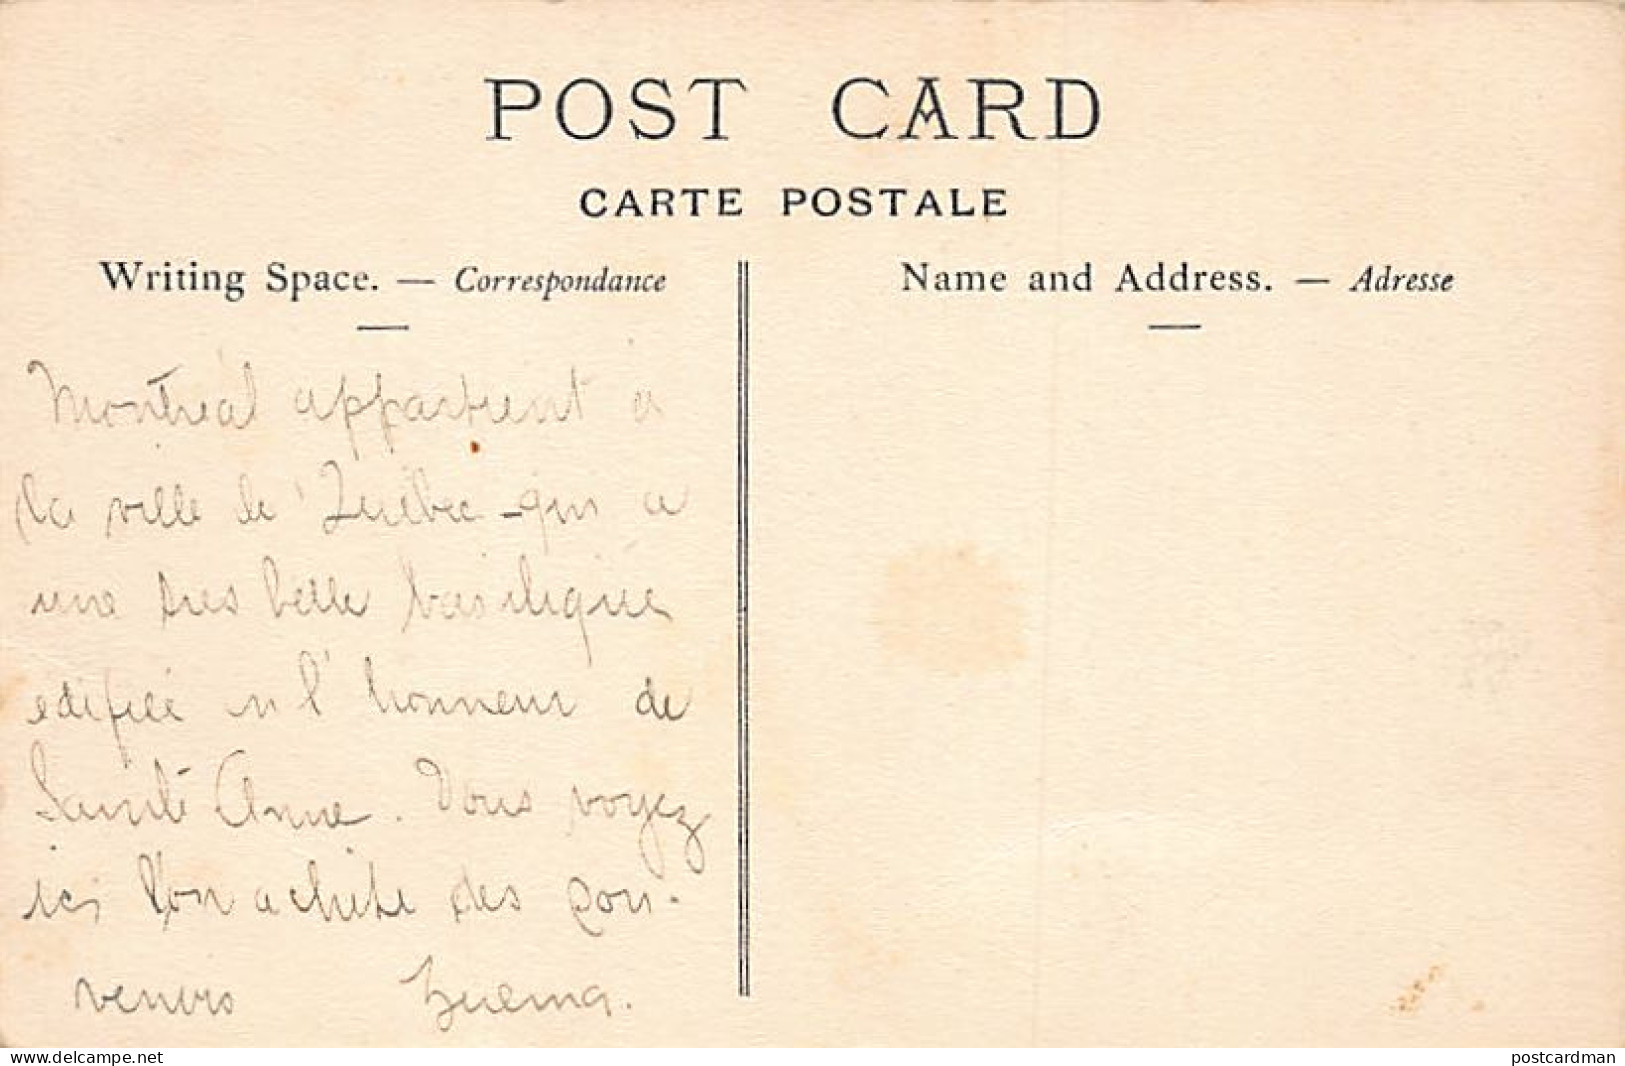 POST CARD
CARTE POSTALE
Writing Space. — Correspondance
Name and Address. — Adresse
Montréal appartient à
la ville de Québec qui a
une tres belle basilique
edifiée en l'honneur de
Sainte Anne. Vous voyez
ici l'on achète des sou-
venirs
www.delcampe.net
postcardman